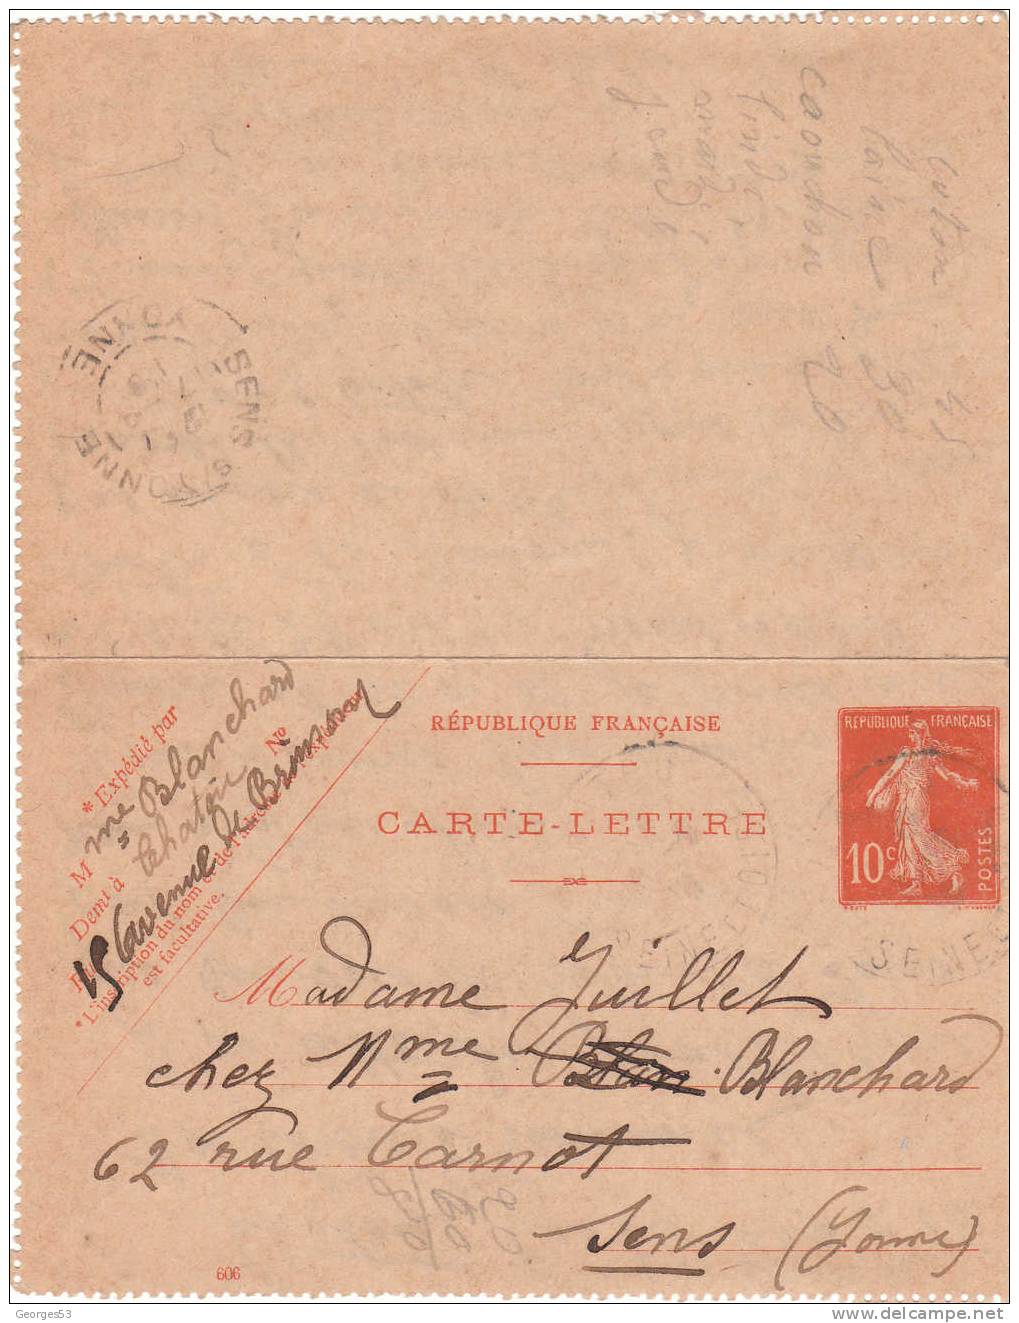 coton 45
laine 30
caouchou 20
SENS S/YONNE
YONNE
RÉPUBLIQUE FRANÇAISE
CARTE-LETTRE
RÉPUBLIQUE FRANÇAISE
10c
POSTES
* Expédié par
Mme Blanchard
Demt à Chatou
15 avenue de Brimont
No
* L'inscription du nom et de l'adresse de l'expéditeur
est facultative.
Madame Juillet
chez Mme Blan. Blanchard
62 rue Carnot
Sens (Yonne)
606
Georges53
www.delcampe.net